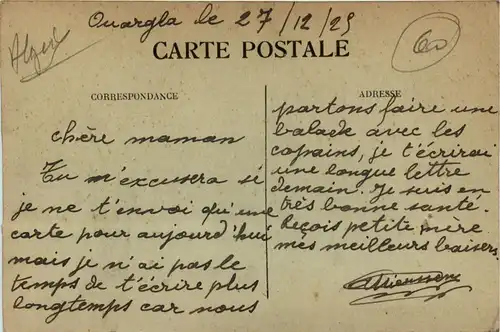 Ouargla le 27/12/25
Algérie
60
CARTE POSTALE
CORRESPONDANCE
chère maman
Tu m'excusera si
je ne t'envoi qu'une
carte pour aujourd'hui
mais je n'ai pas le
temps de t'écrire plus
longtemps car nous
ADRESSE
partons faire une
balade avec les
copains, je t'écrirai
une longue lettre
demain. Je suis en
très bonne santé.
Reçois petite mère
mes meilleurs baisers.